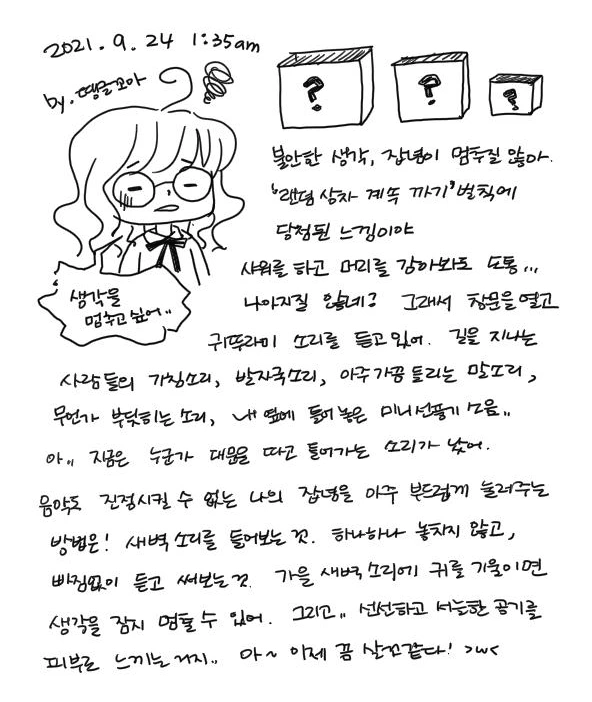 2021. 9. 24 1:35am
by. 땡글꼬아
? ? ?
불안한 생각, 잡념이 멈추질 않아.
'랜덤 상자 계속 까기' 벌칙에
당첨된 느낌이야
샤워를 하고 머리를 감아봐도 도통...
나아지질 않네? 그래서 창문을 열고
"생각을
멈추고 싶어"
귀뚜라미 소리를 듣고있어. 길을 지나는
사람들의 기침소리, 발자국소리, 아주 가끔 들리는 말소리,
무언가 부딪히는 소리, 내 옆에 틀어놓은 미니선풍기 소음..
아.. 지금은 누군가 대문을 따고 들어가는 소리가 났어.
음악도 진정시킬 수 없는 나의 잡념을 아주 부드럽게 눌러주는
방법은! 새벽소리를 들어보는 것. 하나하나 놓치지 않고,
빠짐없이 듣고 써보는 것. 가을 새벽소리에 귀를 기울이면
생각을 잠시 멈출 수 있어. 그리고.. 선선하고 서늘한 공기를
피부로 느끼는 거지.. 아~ 이제 꿈 살꼬같다! >w<